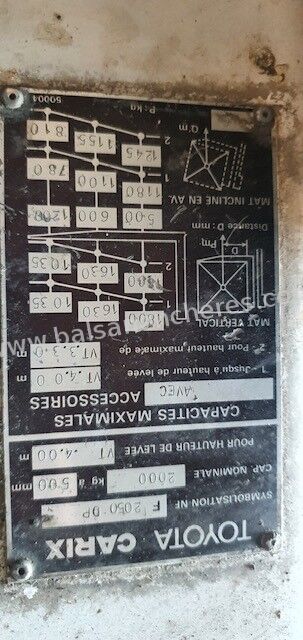 TOYOTA CARIX
SYMBOLISATION NF F 2050 DP
CAP. NOMINALE 2000 kg à 500 mm
POUR HAUTEUR DE LEVÉE VT.4.00 m
CAPACITÉS MAXIMALES
AVEC ACCESSOIRES
1 - Jusqu'à hauteur de levée VT.4.00 m
2 - Pour hauteur, maximale de VT.3.30 m
MAT VERTICAL
1 1800 1630 1035
2 1800 1630 1035
Pm
D
Distance D : mm 500 600 1200
MAT INCLINE EN AV.
1 1180 1100 780
2 1245 1155 810
Q/m
P : kg
50004
www.balsan-encheres.co